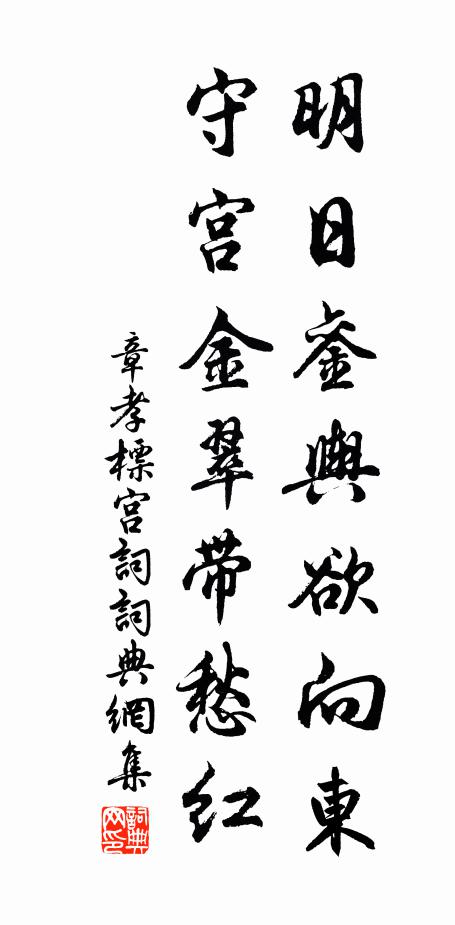 明日銮輿欲向東
守宫金翠带愁红
章孝標宫詞詞典網集
詞典网印